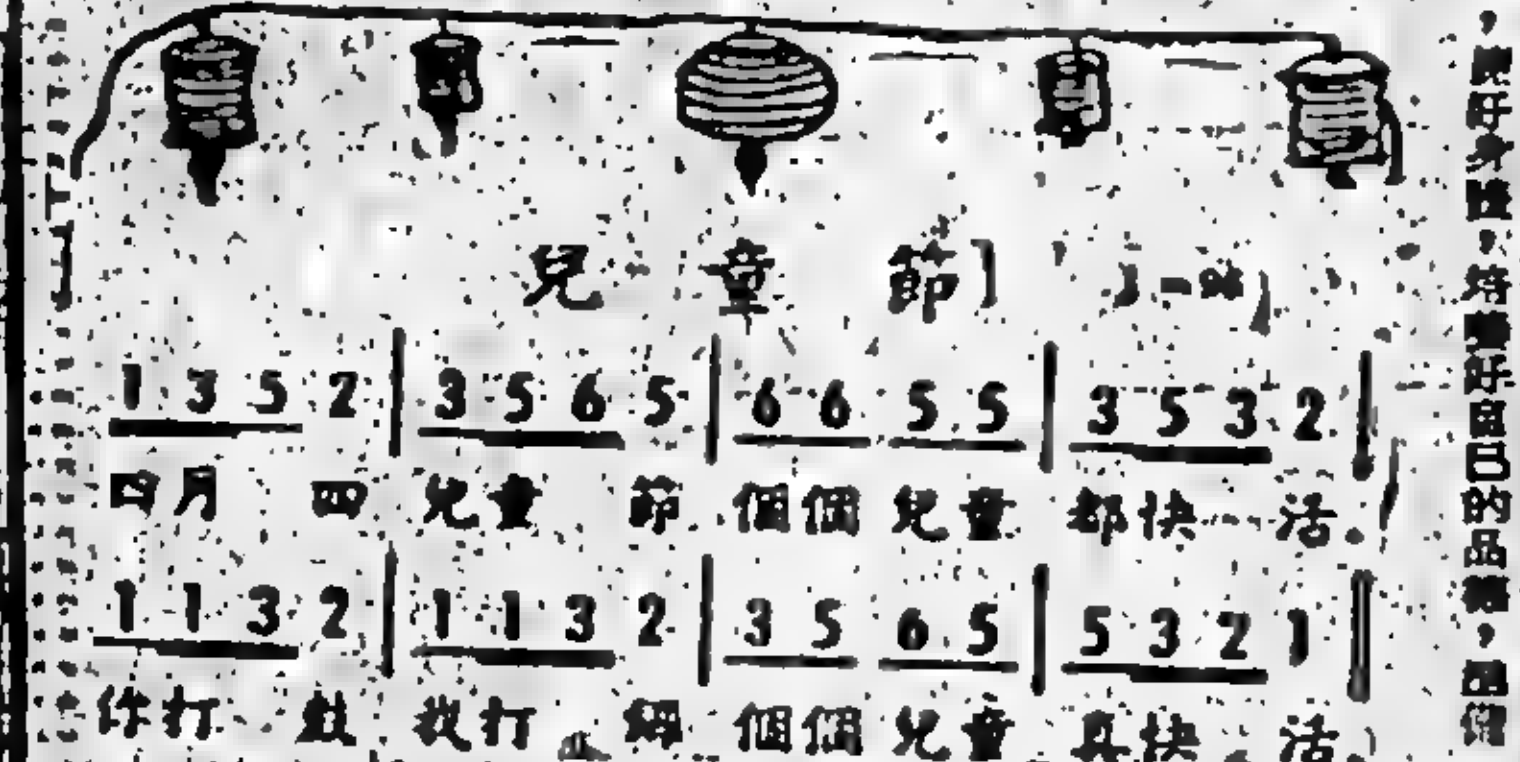 兒童節
1 3 5 2 | 3 5 6 5 | 6 6 5 5 | 3 5 3 2 |
四月四 兒童節 個個兒童都快活.
1 1 3 2 | 1 1 3 2 | 3 5 6 5 | 5 3 2 1 ‖
你打鼓 我打鑼 個個兒童真快活.
好身體,培養好自己的品德,